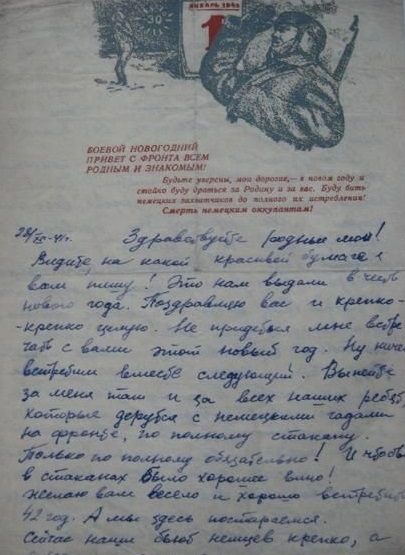 ЯНВАРЬ 1942
1
БОЕВОЙ НОВОГОДНИЙ
ПРИВЕТ С ФРОНТА ВСЕМ
РОДНЫМ И ЗНАКОМЫМ!
Будьте уверены, мои дорогие,— в новом году я
стойко буду драться за Родину и за вас. Буду бить
немецких захватчиков до полного их истребления!
Смерть немецким оккупантам!
Здравствуйте родные мои!
Видите, на какой красивой бумаге я
вам пишу! Это нам выдали в честь
нового года. Поздравляю вас и крепко-
-крепко целую. Не придется мне встре
чать с вами этот новый год. Ну ничего
встретим вместе следующий. Выпейте
за меня там и за всех наших ребят,
которые дерутся с немецкими гадами
на фронте, по полному стакану.
Только по полному обязательно! И чтобы
в стаканах было хорошее вино!
Желаю вам весело и хорошо встретить
42 год. А мы здесь постараемся.
Сейчас наши бьют немцев крепко, а